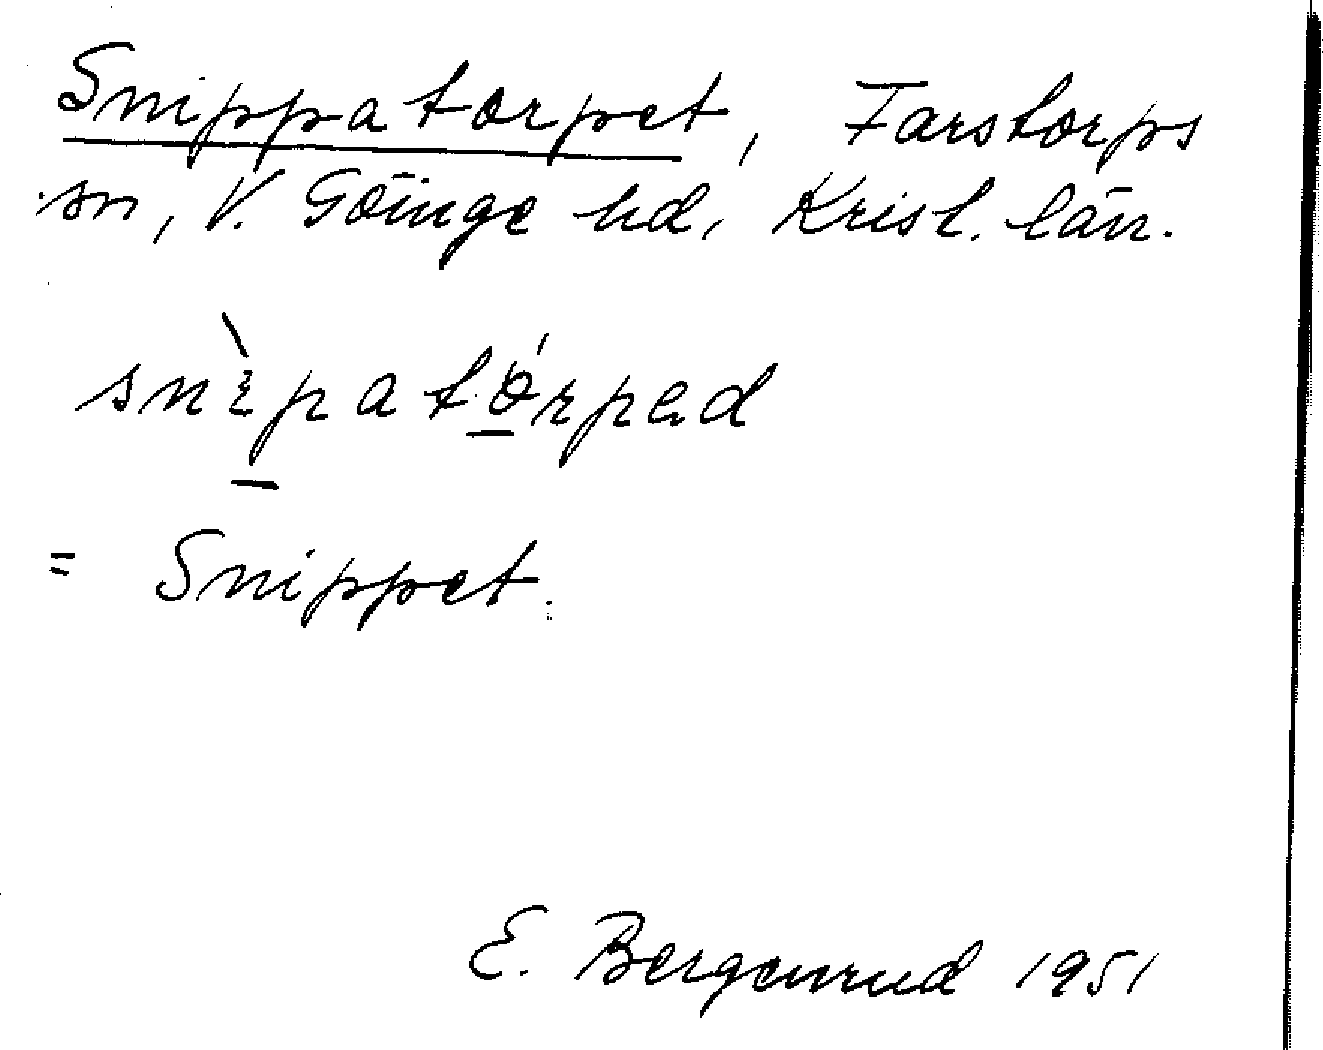 Snippatorpet, Farstorps
sn, V. Göinge hd, Krist. län.
snèpatórpad
= Snippet.
E. Bergenrud 1951